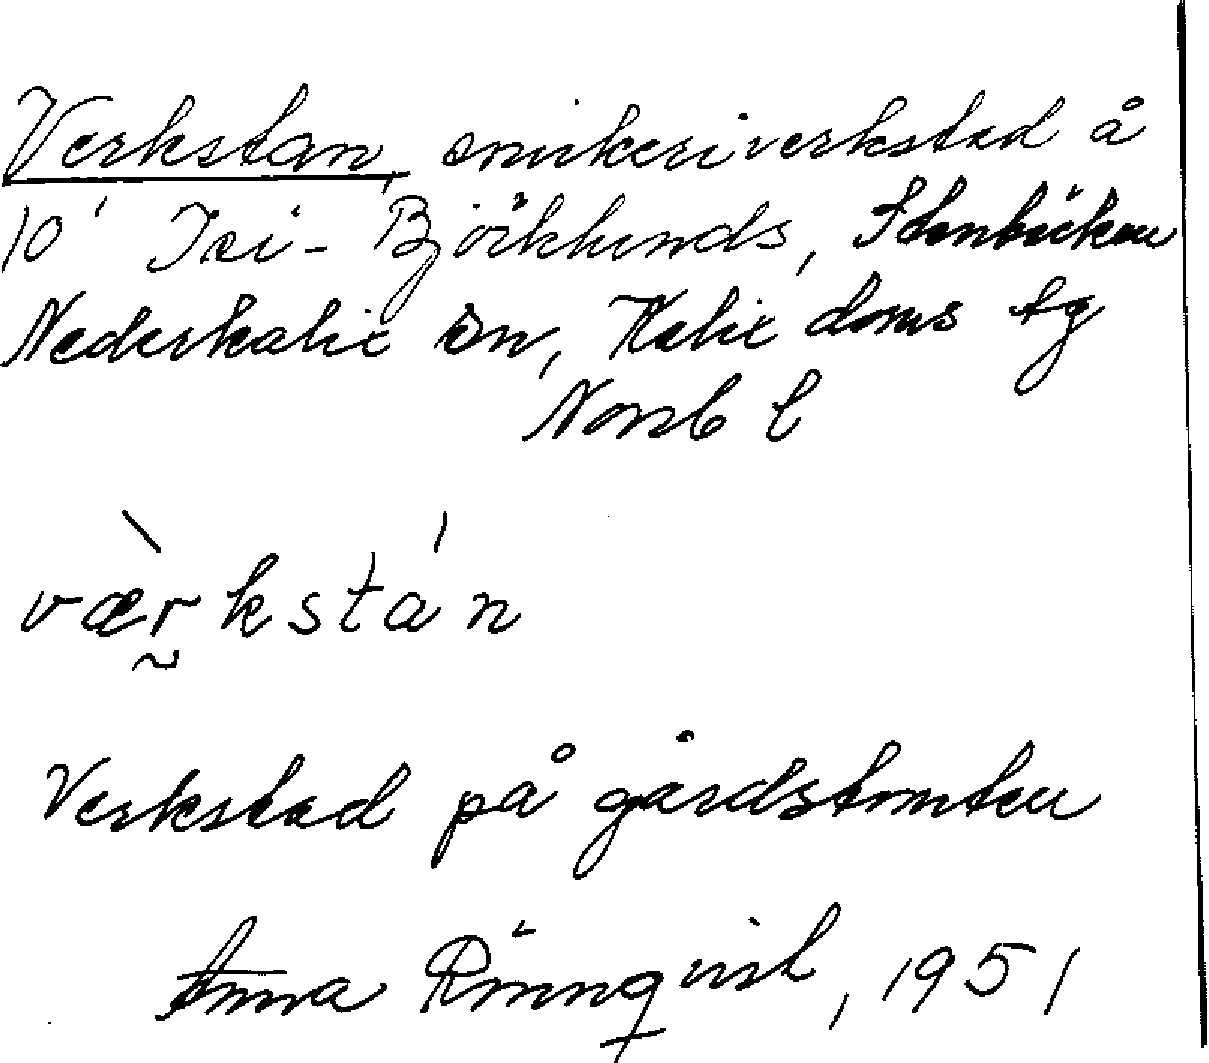 Verkstan, snickeriverkstad å
10¹ Isi-Björklunds, Stenbäcken
Nederkalix sn, Kalix doms tg
Norrb l
væ̀rkstá n
Verkstad på gårdstomten
Anna Rönnqvist, 1951